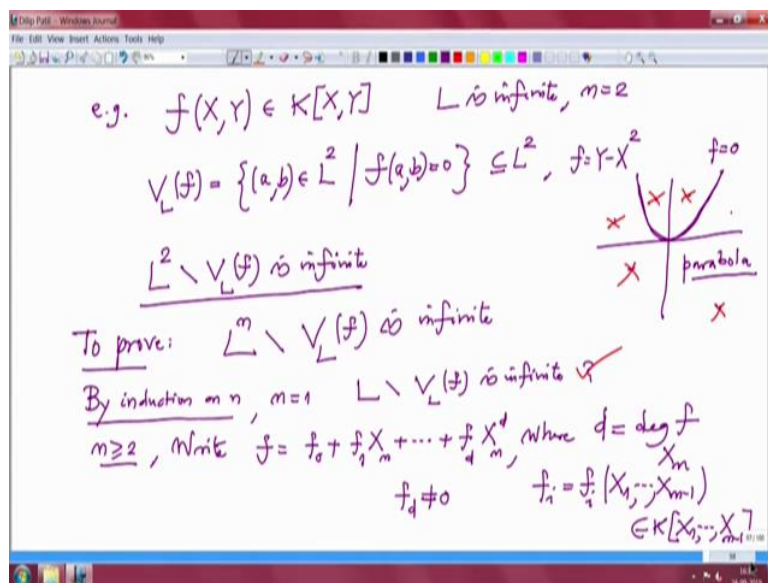 Dilip Patil - Windows Journal
File Edit View Insert Actions Tools Help
e.g. f(X,Y) ∈ K[X,Y] L is infinite, n=2
V_L(f) = {(a,b) ∈ L² | f(a,b)=0} ⊆ L², f=Y-X² f=0
parabola
L² \ V_L(f) is infinite
To prove: Lⁿ \ V_L(f) is infinite
By induction on n, n=1 L \ V_L(f) is infinite ✓
n≥2, Write f = f₀ + f₁Xₙ + ... + f_d Xₙ^d, where d = deg_{Xₙ} f
f_d ≠ 0 f_i = f_i(X₁,...,X_{n-1})
∈ K[X₁,...,X_{n-1}]